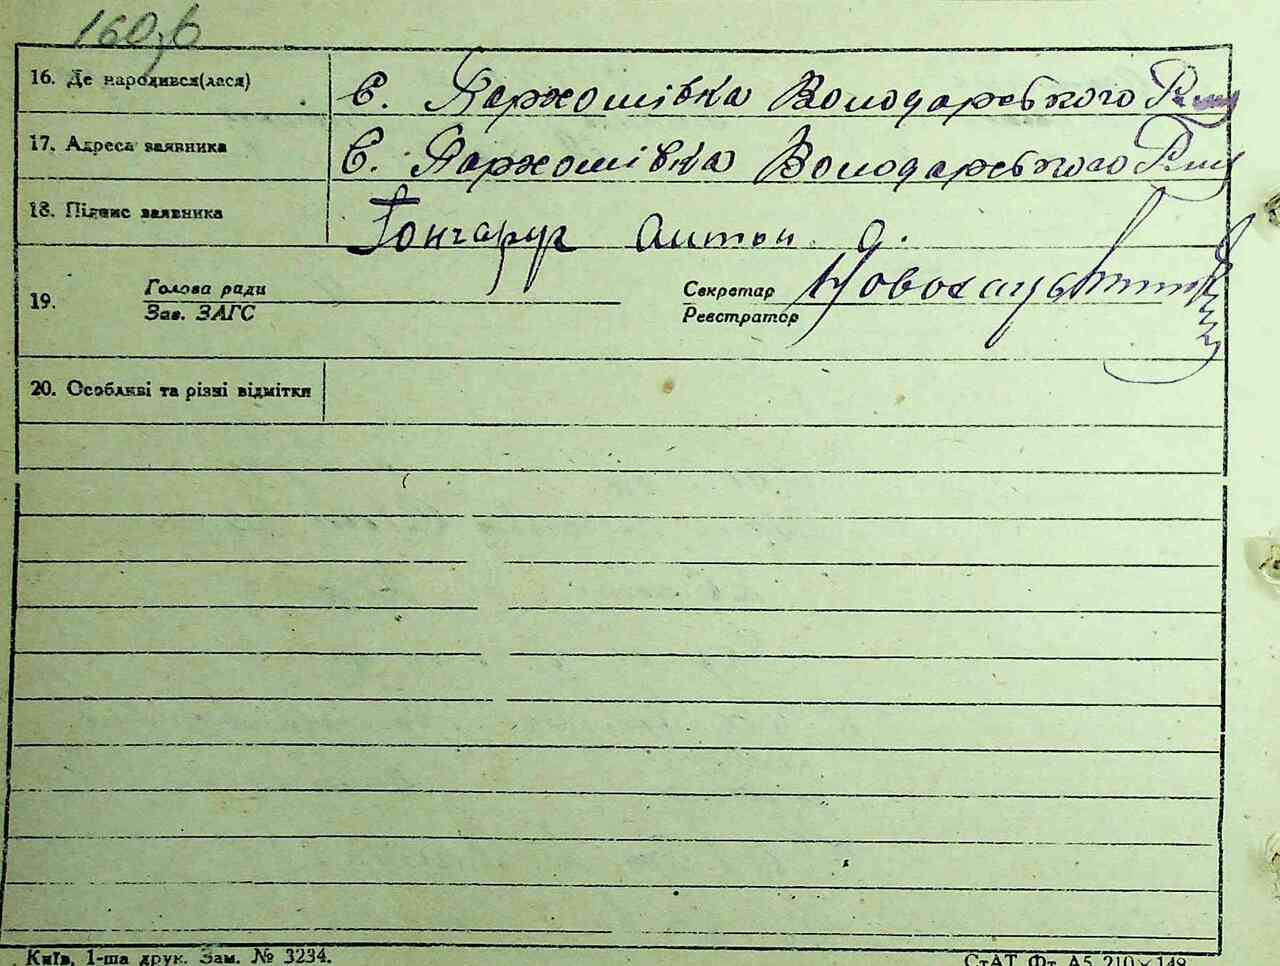 160зв
16. Де народився(лася) С. Пархомівка Володарського Р-ну
17. Адреса заявника С. Пархомівка Володарського Р-ну
18. Підпис заявника Гончарук Антон О.
19. Голова ради Секретар
Зав. ЗАГС Реєстратор
20. Особливі та різні відмітки
Київ, 1-ша друк. Зам. № 3234. СтАТ Фт А5 210×148